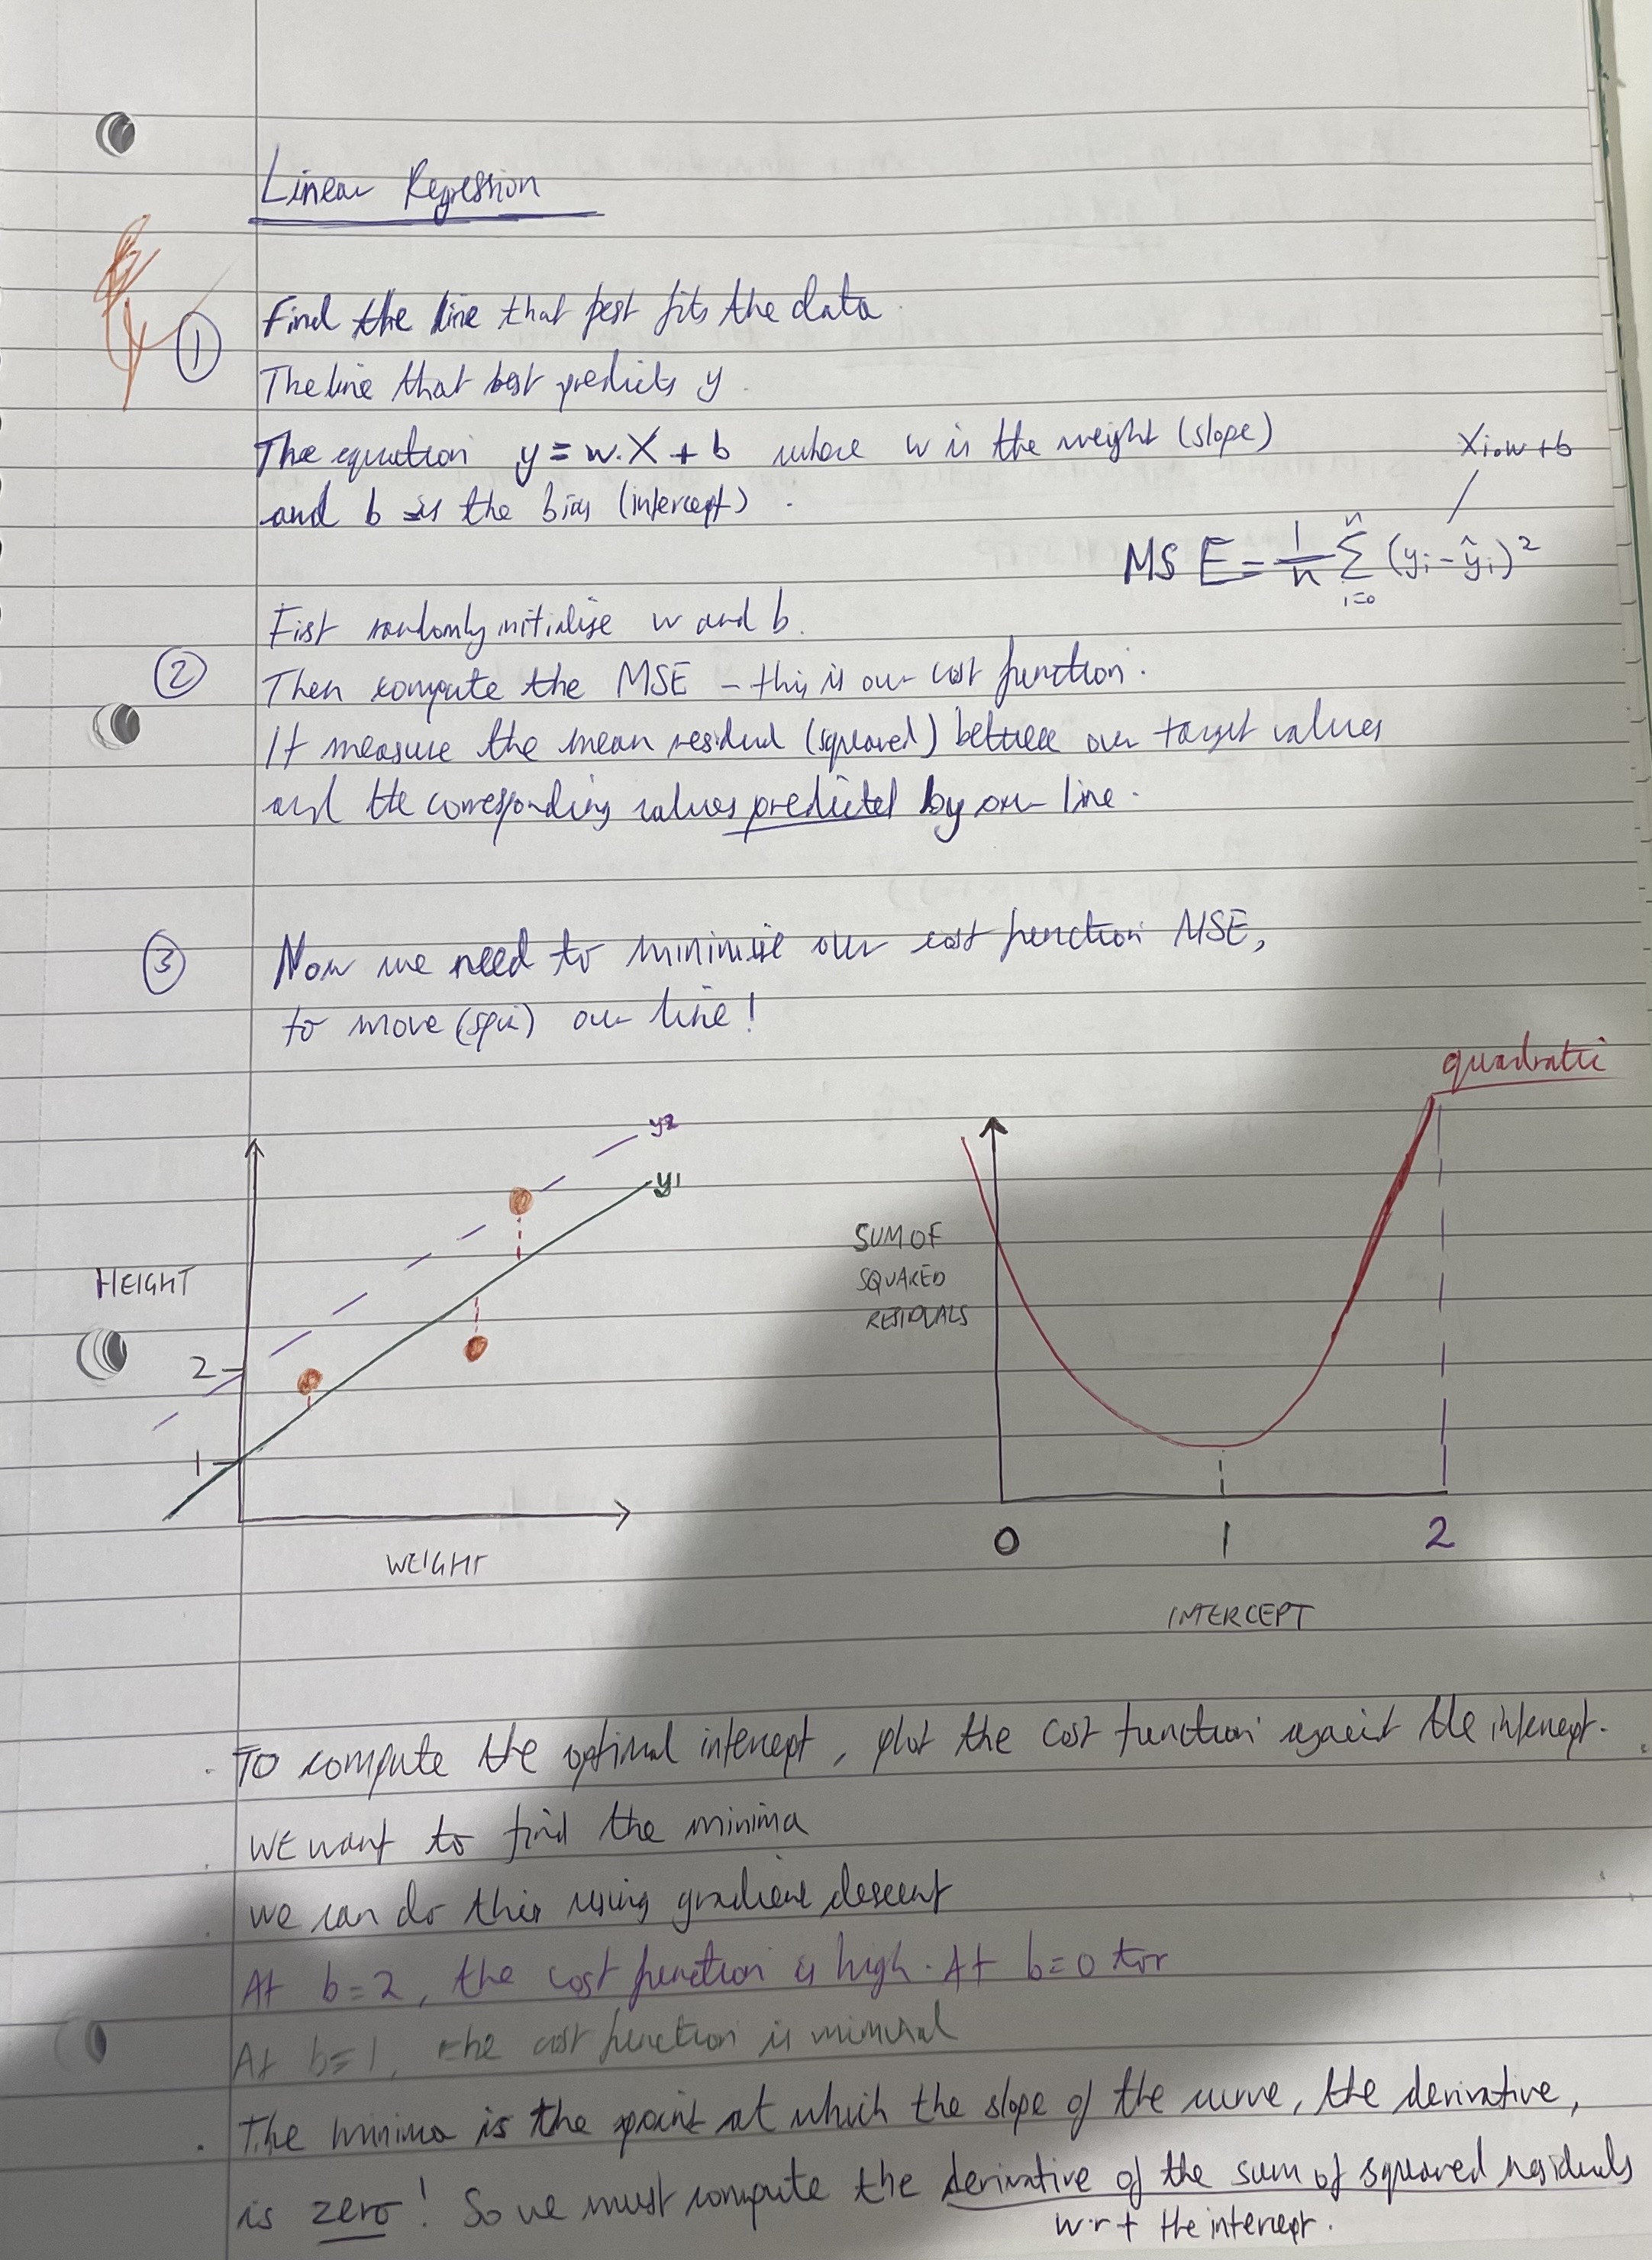 Linear Regression
① Find the line that best fits the data.
The line that best predicts y.
The equation y = w.X + b where w is the weight (slope)
and b is the bias (intercept).
Xi.w + b
MSE = 1/n Σ (yi - ŷi)²
n
i=0
First randomly initialise w and b.
② Then compute the MSE - this is our cost function.
It measure the mean residual (squared) between our target values
and the corresponding values predicted by our line.
③ Now we need to minimise our cost function MSE,
to move (spin) our line!
quadratic
y2
y1
HEIGHT
2
1
WEIGHT
SUM OF
SQUARED
RESIDUALS
0 1 2
INTERCEPT
. To compute the optimal intercept, plot the cost function against the intercept.
. We want to find the minima
. we can do this using gradient descent
At b=2, the cost function is high. At b=0 too
At b=1, the cost function is minimal
. The minima is the point at which the slope of the curve, the derivative,
is zero! So we must compute the derivative of the sum of squared residuals
w.r.t the intercept.